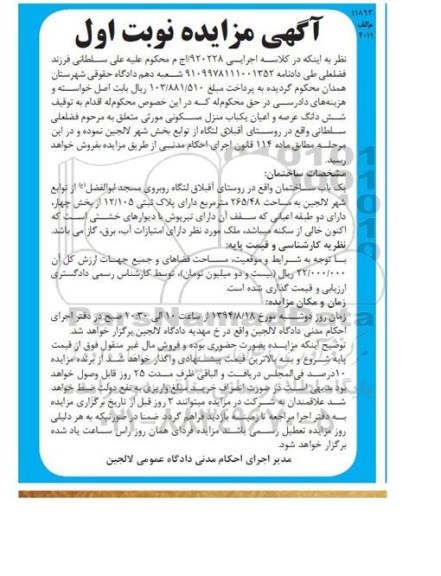 ۱۱۸۹۳
م‌الف
۴۰۱۱
آگهی مزایده نوبت اول
نظر به اینکه در کلاسه اجرایی ۹۲۰۲۲۸/اج م محکوم علیه علی سلطانی فرزند
فضلعلی طی دادنامه ۹۱۰۹۹۷۸۱۱۱۰۰۱۳۵۲ شعبه دهم دادگاه حقوقی شهرستان
همدان محکوم گردیده به پرداخت مبلغ ۱۰۳/۸۸۱/۵۱۰ ریال بابت اصل خواسته و
هزینه‌های دادرسی در حق محکوم‌له که در این خصوص محکوم‌له اقدام به توقیف
شش دانگ عرصه و اعیان یکباب منزل مسکونی مورثی متعلق به مرحوم فضلعلی
سلطانی واقع در روستای آقبلاق لتگاه از توابع بخش شهر لالجین نموده و در این
مرحله مطابق ماده ۱۱۴ قانون اجرای احکام مدنی از طریق مزایده بفروش خواهد
رسید.
مشخصات ساختمان:
یک باب ساختمان واقع در روستای آقبلاق لتگاه روبروی مسجد ابوالفضل(ع) از توابع
شهر لالجین به مساحت ۲۶۵/۴۸ مترمربع دارای پلاک ثبتی ۱۲/۱۰۵ از بخش چهار،
دارای دو طبقه اعیانی که سقف آن دارای تیرپوش با دیوارهای خشتی است که
اکنون خالی از سکنه میباشد، ملک مورد نظر دارای امتیازات آب، برق، گاز می باشد.
نظریه کارشناسی و قیمت پایه:
با توجه به شرایط و موقعیت، مساحت فضاهای و جمیع جهات ارزش کل آن
۲۲/۰۰۰/۰۰۰ ریال (بیست و دو میلیون تومان)، توسط کارشناس رسمی دادگستری
ارزیابی و قیمت گذاری شده است.
زمان و مکان مزایده:
زمان روز دوشنبه مورخ ۱۳۹۴/۸/۱۸ از ساعت ۱۰ الی ۱۰:۳۰ صبح در دفتر اجرای
احکام مدنی دادگاه لالجین واقع در خ مهدیه دادگاه لالجین برگزار خواهد شد.
توضیح اینکه مزایده بصورت حضوری بوده و فروش مال غیر منقول فوق از قیمت
پایه شروع و به بالاترین قیمت پیشنهادی واگذار خواهد شد از برنده مزایده
۱۰درصد فی‌المجلس دریافت و الباقی ظرف مدت ۲۵ روز قابل وصول خواهد
بود بدیهی است در صورت انصراف خریدار مبلغ واریزی به نفع دولت ضبط خواهد
شد علاقمندان به شرکت در مزایده میتوانند ۲ روز قبل از تاریخ برگزاری مزایده
به دفتر اجرا مراجعه تا زمینه بازدید فراهم گردد. ضمنا در صورتیکه به هر دلیلی
روز مزایده تعطیل رسمی باشد مزایده فردای همان روز راس ساعت یاد شده
برگزار خواهد شود.
مدیر اجرای احکام مدنی دادگاه عمومی لالجین